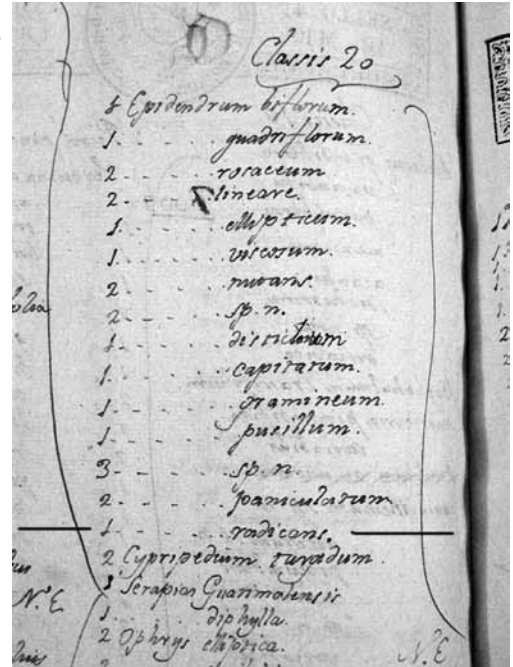 Classis 20
1 Epidendrum biflorum.
1. - - - - quadriflorum.
2 - - - - rosaceum
2 - - - lineare.
1. - - - - ellipticum.
1 - - - - viscosum.
2 - - - - nutans.
2 - - - - sp. n.
1. - - - - distichum
1. - - - - capitatum.
1. - - - - gramineum.
1 - - - - pusillum.
3 - - - - sp. n.
2 - - - - paniculatum
1. - - - - radicans.
2 Cypripedium turgidum.
1 Serapias Guatimalensis
1. diphylla.
2 Ophrys elliptica.
N.E
N.E